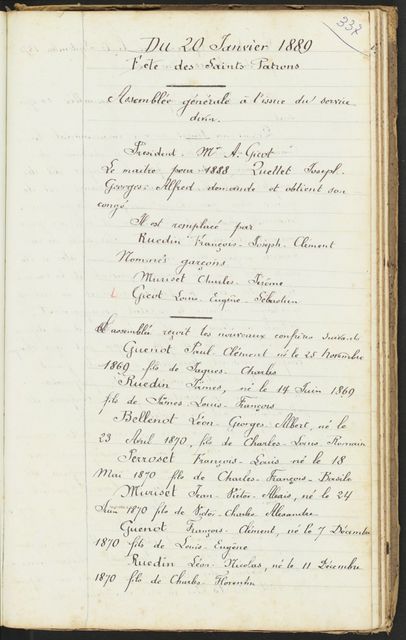 337
Du 20 Janvier 1889
Fête des Saints Patrons
Assemblée générale à l'issue du service
divin.
Président. Mr A. Gicot
Le maître pour 1888 Quellet Joseph-
Georges-Alfred demande et obtient son
congé.
Il est remplacé par
Ruedin François-Joseph-Clément
Nommés garçons
Muriset Charles-Jérôme
Gicot Louis-Eugène-Sébastien
L'assemblée reçoit les nouveaux confrères suivants
Guenot Paul-Clément né le 25 Novembre
1869 fils de Jaques-Charles
Ruedin James, né le 14 Juin 1869
fils de James-Louis-François
Bellenot Léon-Georges-Albert, né le
23 Avril 1870, fils de Charles-Louis Romain
Perroset François-Louis né le 18
Mai 1870 fils de Charles-François-Basile
Muriset Jean-Victor-Alexis, né le 24
Juin 1870 fils de Victor-Charles Alexandre
Guenot François-Clément, né le 7 Décembre
1870 fils de Louis-Eugène
Ruedin Léon-Nicolas, né le 11 Décembre
1870 fils de Charles-Florentin